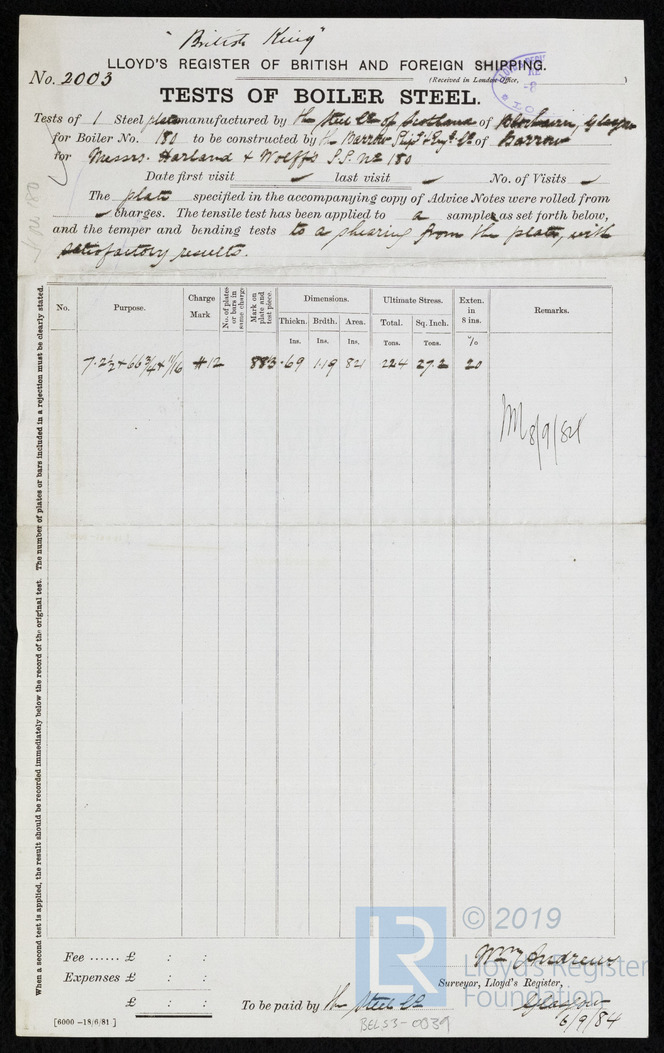 "British King"
LLOYD'S REGISTER OF BRITISH AND FOREIGN SHIPPING.
No. 2003
(Received in London Office, )
TESTS OF BOILER STEEL.
Tests of 1 Steel plate manufactured by the Steel Co of Scotland of Blochairn, Glasgow
for Boiler No. 180 to be constructed by the Barrow Ship & Engg Co of Barrow
for Messrs. Harland & Wolff's S.S. No 180
Date first visit ✓ last visit ✓ No. of Visits ✓
The plate specified in the accompanying copy of Advice Notes were rolled from
✓ charges. The tensile test has been applied to a samples as set forth below,
and the temper and bending tests to a shearing from the plate, with
satisfactory results.
No. 180
When a second test is applied, the result should be recorded immediately below the record of the original test. The number of plates or bars included in a rejection must be clearly stated.
No. Purpose. Charge Mark No. of plates or bars in same charge Mark on plate and test piece. Dimensions. Ultimate Stress. Exten. in 8 ins. Remarks.
Thickn. Brdth. Area. Total. Sq. Inch.
Ins. Ins. Ins. Tons. Tons. %
7.2½ x 66¾ x 11/16 #12 883 .69 1.19 .821 22.4 27.2 20
8/9/84
© 2019
LR
Lloyd's Register
Foundation
Fee ...... £ : :
Expenses £ : :
£ : :
Wm Andrew
Surveyor, Lloyd's Register,
To be paid by the Steel Co
Glasgow
6/9/84
[6000 -18/6/81]
BEL53-0039